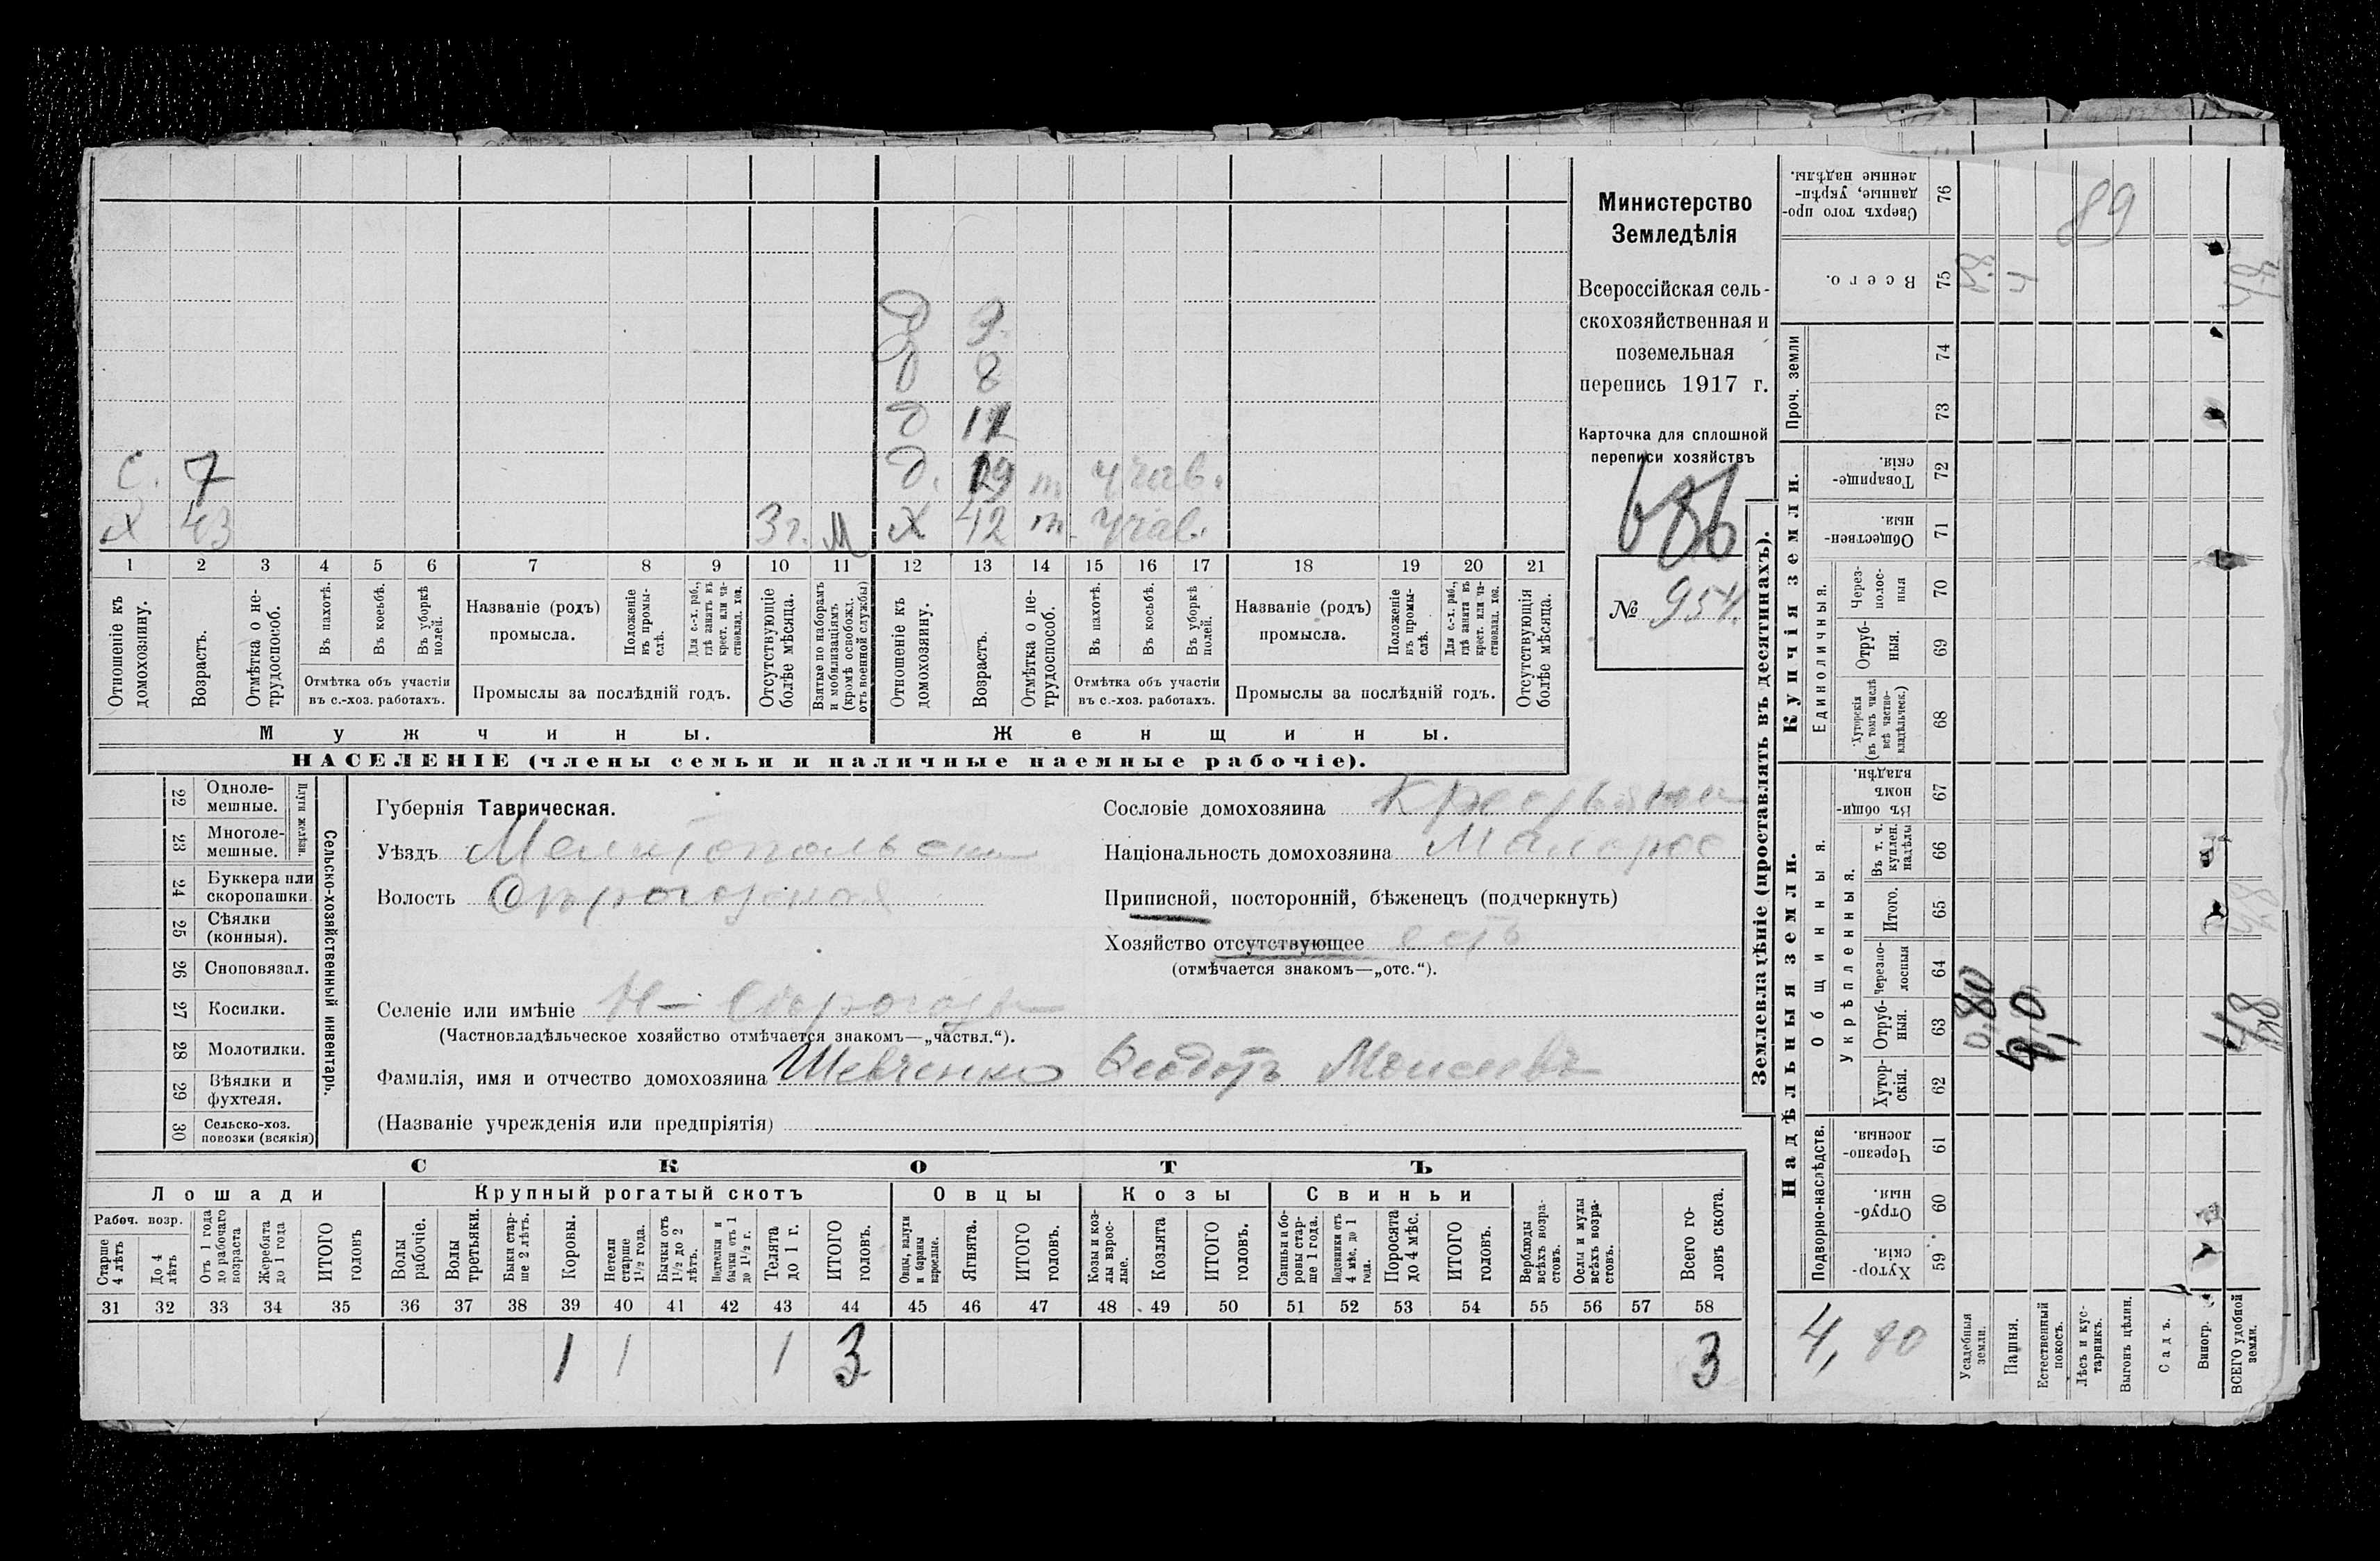 Министерство
Земледѣлія
Всероссійская сель-
скохозяйственная и
поземельная
перепись 1917 г.
Карточка для сплошной
переписи хозяйствъ
686
№ 954.
Д 9
Д 8
Д
С. 7 Д. 19 т.
Х 43 3 г. М Х 42 т.
1 2 3 4 5 6 7 8 9 10 11 12 13 14 15 16 17 18 19 20 21
Отношеніе къ домохозяину.
Возрастъ.
Отмѣтка о не-трудоспособ.
Въ пахотѣ.
Въ косьбѣ.
Въ уборкѣ полей.
Отмѣтка объ участіи
въ с.-хоз. работахъ.
Названіе (родъ)
промысла.
Положеніе въ промы-слѣ.
Для с.-х. раб., гдѣ занятъ въ крест. или ча-стновлад. хоз.
Промыслы за послѣдній годъ.
Отсутствующіе болѣе мѣсяца.
Взятые по наборамъ и мобилизаціямъ (кромѣ освобожд. отъ военной службы)
Отношеніе къ домохозяину.
Возрастъ.
Отмѣтка о не-трудоспособ.
Въ пахотѣ.
Въ косьбѣ.
Въ уборкѣ полей.
Отмѣтка объ участіи
въ с.-хоз. работахъ.
Названіе (родъ)
промысла.
Положеніе въ промы-слѣ.
Для с.-х. раб., гдѣ занята въ крест. или ча-стновлад. хоз.
Промыслы за послѣдній годъ.
Отсутствующія болѣе мѣсяца.
Мужчины. Женщины.
НАСЕЛЕНІЕ (члены семьи и наличные наемные рабочіе).
22 Одноле-мешные.
23 Многоле-мешные.
Плуги желѣзн.
24 Буккера или скоропашки
25 Сѣялки (конныя).
26 Сноповязал.
27 Косилки.
28 Молотилки.
29 Вѣялки и фухтеля.
30 Сельско-хоз. повозки (всякія)
Сельско-хозяйственный инвентарь.
Губернія Таврическая.
Уѣздъ Мелитопольский
Волость
Сословіе домохозяина Крестьянин
Національность домохозяина Малорос
Приписной, посторонній, бѣженецъ (подчеркнуть)
Хозяйство отсутствующее есть
(отмѣчается знакомъ—„отс.“).
Селеніе или имѣніе
(Частновладѣльческое хозяйство отмѣчается знакомъ—„частвл.“).
Фамилія, имя и отчество домохозяина Шевченко Феодотъ Моисеевъ
(Названіе учрежденія или предпріятія)
СКОТЪ
Лошади Крупный рогатый скотъ Овцы Козы Свиньи
Рабоч. возр.
Старше 4 лѣтъ
До 4 лѣтъ
Отъ 1 года до рабочаго возраста
Жеребята до 1 года
ИТОГО головъ
Волы рабочіе.
Волы третьяки.
Быки стар-ше 2 лѣтъ.
Коровы.
Нетели старше 1½ года.
Бычки отъ 1½ до 2 лѣтъ.
Подтелки и бычки отъ 1 до 1½ г.
Телята до 1 г.
ИТОГО головъ.
Овцы, валухи и бараны взрослые.
Ягнята.
ИТОГО головъ.
Козы и коз-лы взрос-лые.
Козлята
ИТОГО головъ.
Свиньи и бо-ровы стар-ше 1 года.
Подсвинки отъ 4 мѣс. до 1 года.
Поросята до 4 мѣс.
ИТОГО головъ.
Верблюды всѣхъ возра-стовъ.
Ослы и мулы всѣхъ возра-стовъ.
Всего го-ловъ скота.
31 32 33 34 35 36 37 38 39 40 41 42 43 44 45 46 47 48 49 50 51 52 53 54 55 56 57 58
1 1 1 3 3
Землевладѣніе (проставлять въ десятинахъ).
Надѣльныя земли.
Купчія земли.
Проч. земли
Подворно-наслѣдств.
Общинныя.
Укрѣпленныя.
Единоличныя.
59 Хутор-скія.
60 Отруб-ныя.
61 Черезпо-лосныя.
62 Хутор-скія.
63 Отруб-ныя.
64 Черезпо-лосныя
65 Итого.
66 Въ т. ч. куплен. надѣлы
67 Въ общин-номъ владѣн.
68 Хуторскія (въ томъ числѣ всѣ частно-владѣльческ.)
69 Отруб-ныя.
70 Через-полос-ныя
71 Обществен-ныя.
72 Товарище-скія.
73
74
75 Всего.
76 Сверхъ того про-данные, укрѣп-ленные надѣлы.
89
0,80
4,0
4,80
Усадебныя земли.
Пашня.
Естественный покосъ.
Лѣсъ и кус-тарникъ.
Выгонъ цѣлин.
Садъ.
Виногр.
ВСЕГО удобной земли.